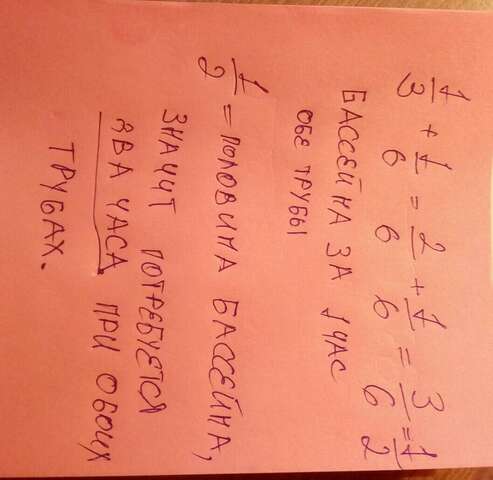 1/3 + 1/6 = 2/6 + 1/6 = 3/6 = 1/2
БАССЕЙНА ЗА 1 ЧАС
ОБЕ ТРУБЫ
1/2 = ПОЛОВИНА БАССЕЙНА,
ЗНАЧИТ ПОТРЕБУЕТСЯ
ДВА ЧАСА ПРИ ОБОИХ
ТРУБАХ.